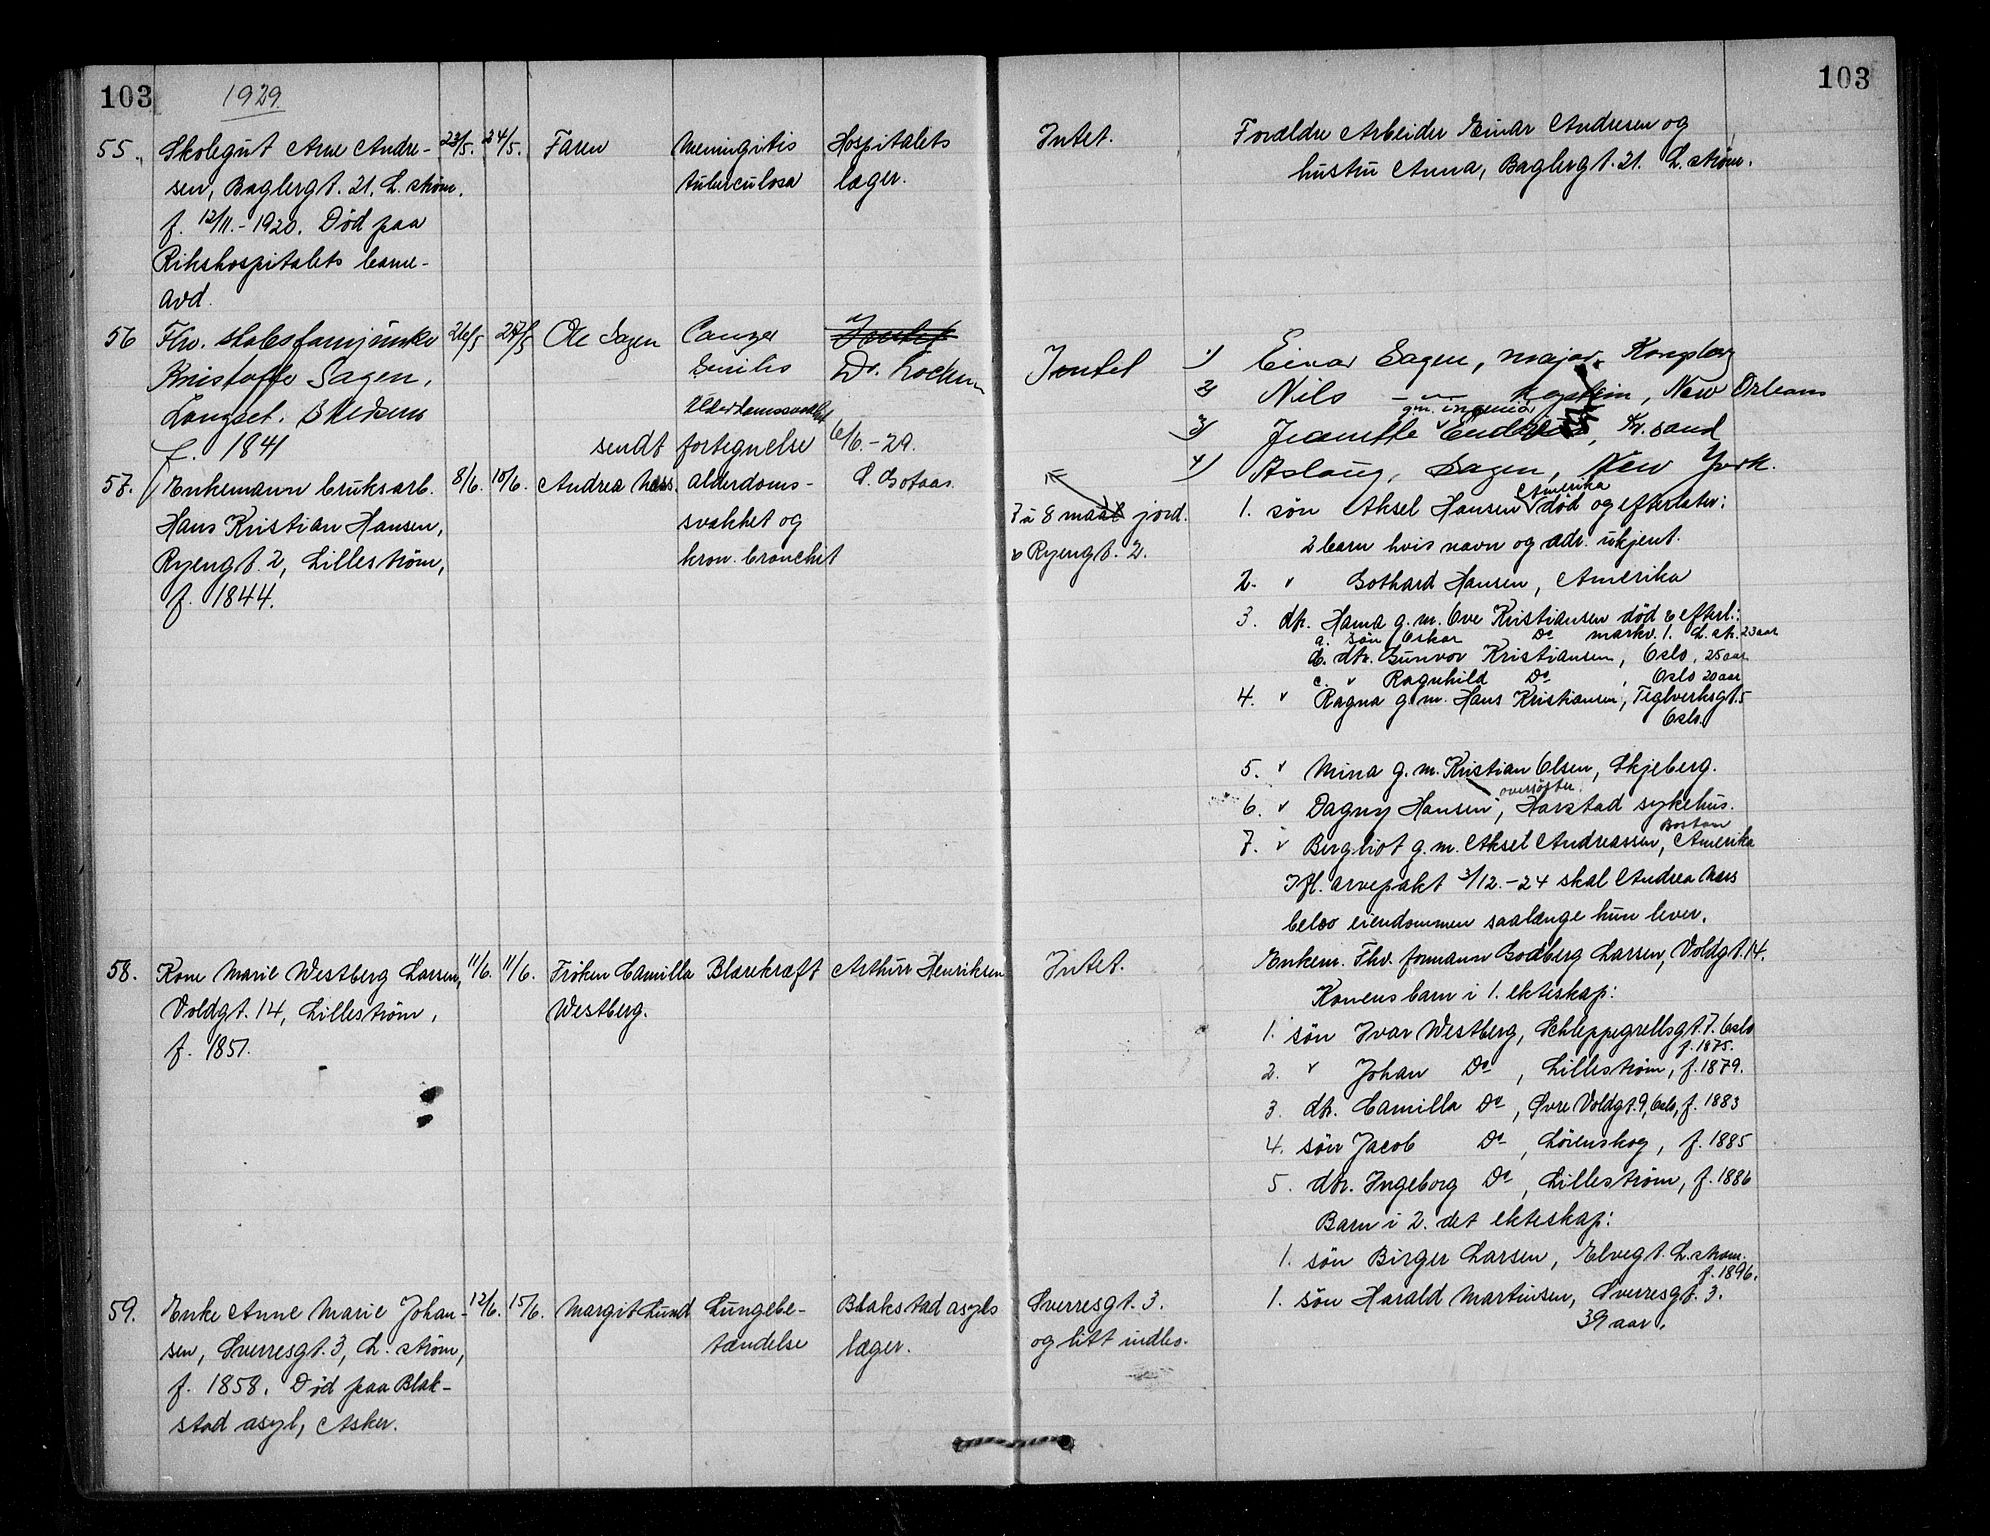 103
1929.
55.
Skolegut Arne Andre-
sen, Baglergt. 21. L. strøm.
f. 12/11.-1920. Død paa
Rikshospitalets barne-
avd.
23/5.
24/5.
Faren
Meningitis
tuberculosa
Hospitalets
læger.
56
Fhv.
Kristoffe Sagen,
Langset.
f. 1841
26/5
Ole Sagen
Cancer
Senilis
Alderdomssvakhet
Dr.
sendt fortegnelse 6/6.-29.
57.
Enkemann bruksarb.
Hans Kristian Hansen,
Ryengt. 2, Lillestrøm,
f. 1844.
8/6.
10/6.
Andrea Næss.
alderdoms-
svakhet og
kron. bronchit
58.
Kone Marie Westberg Larsen,
Voldgt. 14, Lillestrøm,
f. 1851.
11/6.
11/6.
Frøken Camilla
Westberg.
Blærekræft
Arthur Henriksen
59.
Enke Anne Marie Johan-
sen, Sverresgt. 3, L. strøm,
f. 1858. Død paa Blak-
stad asyl, Asker.
12/6.
15/6.
Margit Lund
Lungebe-
tændelse
Blakstad asyls
læger.
103
Intet.
Forældre Arbeider Einar Andresen og
hustru Anna, Baglergt. 21. L. strøm.
Intet
1) Einar Sagen, major, Kongsberg
2) Nils -"- kaptein, New Orleans
gm. ingeniør
3) Jeanette, Kr. sand
4) Aslaug, Sagen, New York.
7 à 8 maal jord.
Ryengt. 2.
Amerika
1. søn Aksel Hansen død og efterlater:
2 barn hvis navn og adr. ukjent.
2. " Gothard Hansen, Amerika
3. dtr. Hanna g. m. Ove Kristiansen død & efterl.:
a. søn Oskar Do markv. 1. L. st. 23 aar
b. dtr. Gunvor Kristiansen, Oslo, 25 aar
c. " Ragnhild Do, Oslo 20 aar
4. " Ragna g. m. Hans Kristiansen, Teglverksgt. 5
Oslo.
5. " Mina g. m. Kristian Olsen, Skjeberg.
oversøster.
6. " Dagny Hansen, Harstad sykehus.
Boston
7. " Bergliot g. m. Aksel Andreassen, Amerika
Ifl. arvepakt 3/12.-24 skal Andrea Næss
bebo eiendommen saalænge hun lever.
Intet.
Enkem. Fhv. formann Godberg Larsen, Voldgt. 14.
Konens barn i 1. ekteskap:
1. søn Ivar Westberg, Schleppegrellsgt. 7. Oslo
f. 1875.
2. " Johan Do, Lillestrøm, f. 1879.
3. dtr. Camilla Do, Øvre Voldgt. 9, Oslo, f. 1883
4. søn Jacob Do, Lørenskog, f. 1885
5. dtr. Ingeborg Do, Lillestrøm, f. 1886
Barn i 2. det ekteskap:
1. søn Birger Larsen, Elvegt. L. strøm.
f. 1896.
Sverresgt. 3.
og litt indbo.
1. søn Harald Martinsen, Sverresgt. 3.
39 aar.